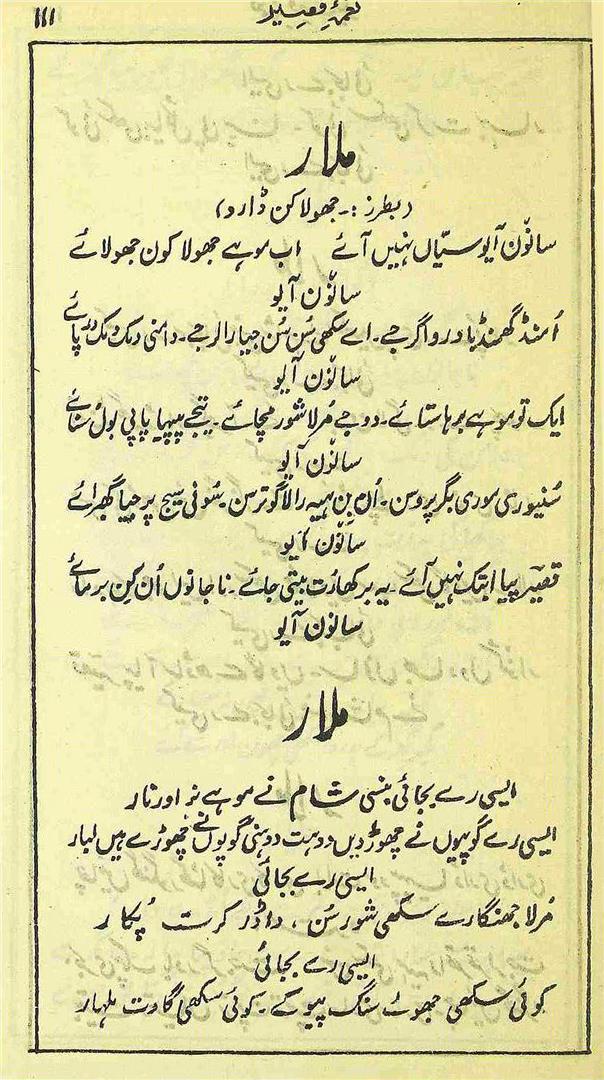 نغمۂ قیصر ۱۱۱
ملار
(بطرز :۔ جھولا کن ڈارو)
سانوَن آیو سیّاں نہیں آئے اب موہے جھولا کون جھولائے
سانوَن آیو
اُمنڈ گھمنڈ بادروا گرجے۔ اے سکھی سُن سُن جیارا لرجے۔ دامنی دمک دمک ڈرپائے
سانوَن آیو
ایک تو موہے برہا ستائے۔ دوجے مُرلا شور مچائے۔ تیجے پپیہا پاپی بول سنائے
سانوَن آیو
سُنیو ری موری بگر پروسن۔ اُن بِن ہیہ را لاگو ترسن۔ سُونی سیج پر جیا گھبرائے
سانوَن آیو
قیصرؔ پیا ابتک نہیں آئے۔ یہ برکھا رُت بیتی جائے۔ نا جانوں اُن کِن برمائے
سانون آیو
ملار
ایسی رے بجائی بنسی شام نے موہے نر اور نار
ایسی رے گوپیوں نے چھوڑ دیں دوہت دوہنی گوپوں نے چھوڑے ہیں لبار
ایسی رے بجائی
مُرلا جھنگارے سکھی شور سُن ، داڈر کرت پُکار
ایسی رے بجائی
کوئی سکھی جھولے سنگ پیو کے۔ کوئی سکھی گاوت ملہار